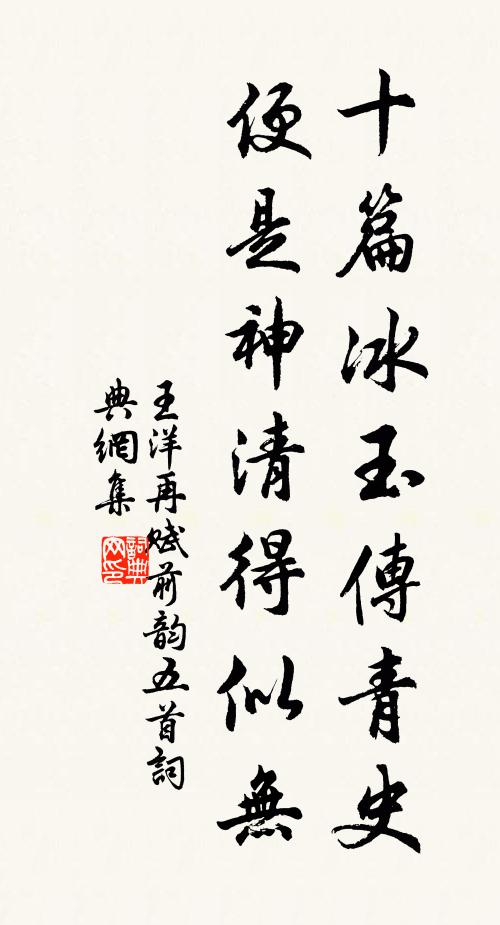 十篇冰玉傳青史
便是神清得似無
王洋再賦前韵五首詞
典網集
詞典
网印